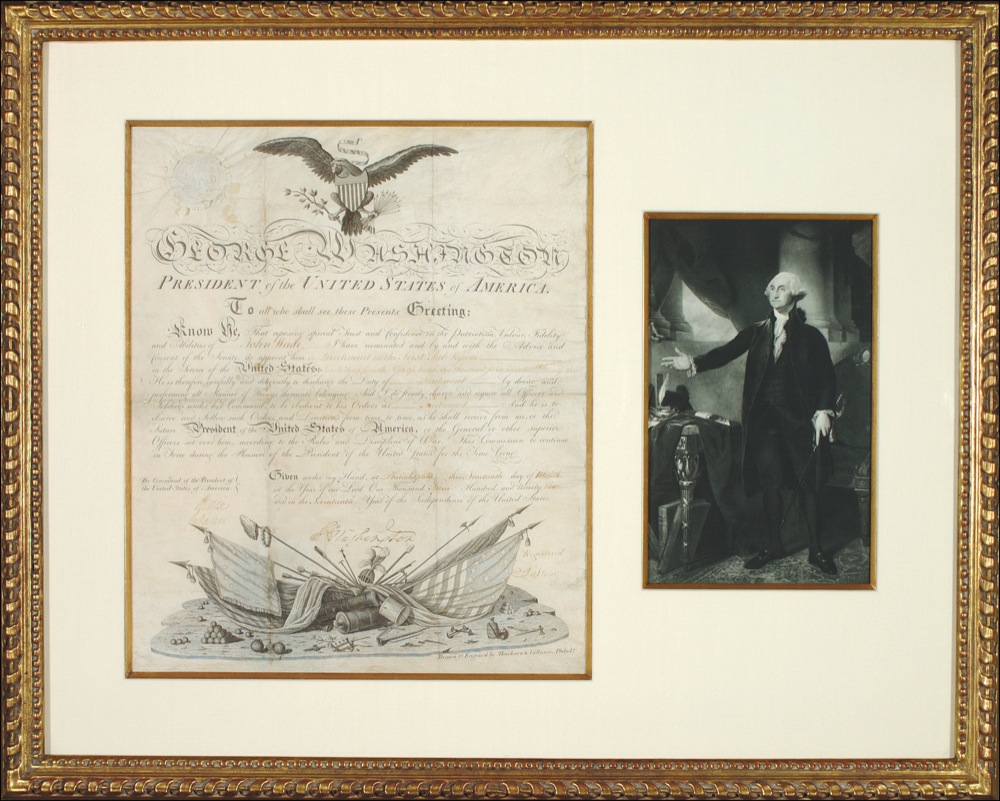 GEORGE WASHINGTON
PRESIDENT of the UNITED STATES of AMERICA.
To all who shall see these Presents Greeting:
Know Ye, That reposing special Trust and Confidence in the Patriotism, Valour, Fidelity
and Abilities of John Wade I have nominated and by and with the Advice and
Consent of the Senate, do appoint him a Lieutenant in the First Sub Legion
in the Service of the United States:
He is therefore carefully and diligently to discharge the Duty of Lieutenant by doing and
performing all Manner of Things thereunto belonging. And I do strictly charge and require all Officers and
Soldiers under his Command to be obedient to his Orders as And he is to
observe and follow such Orders and Directions from time to time, as he shall receive from me, or the
future President of the United States of America, or the General or other superior
Officers set over him, according to the Rules and Discipline of War. This Commission to continue
in Force during the Pleasure of the President of the United States for the Time being.
Given under my Hand, at Philadelphia this Nineteenth day of
in the Year of our Lord One Thousand Seven Hundred and Ninety
and in the Seventeenth Year of the Independence of the United States.
By Command of the President of
the United States of America.
G Washington
Registered
Drawn & Engrav'd by Thackara & Vallance Philad.ª